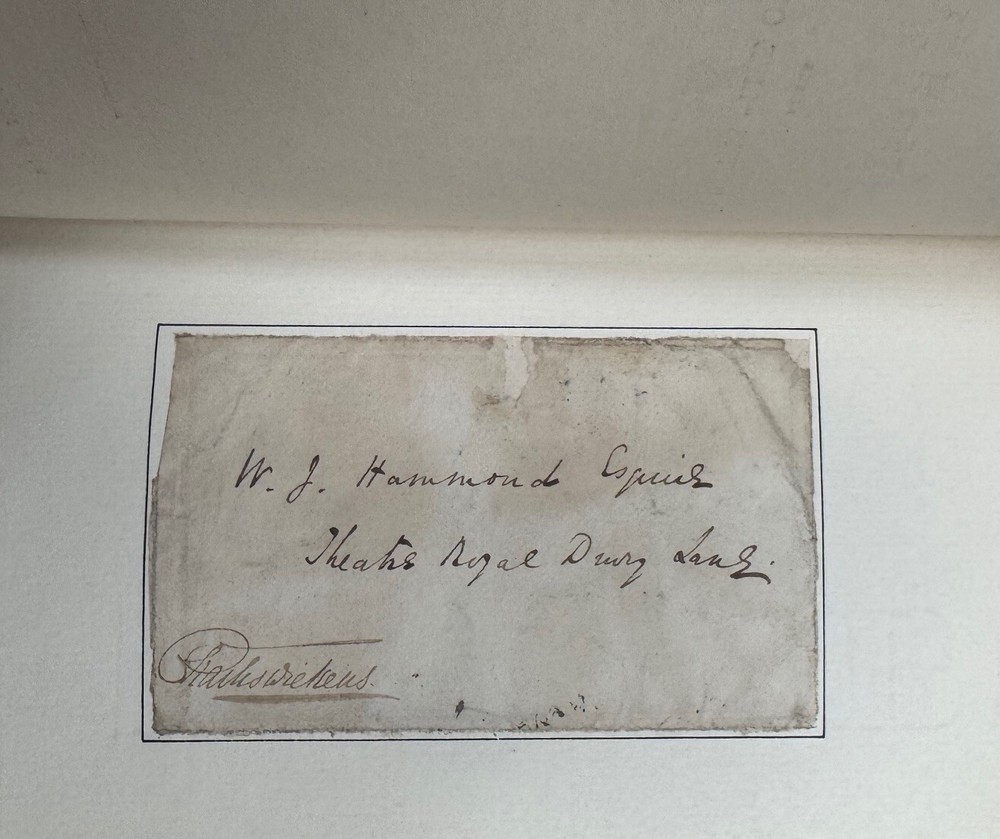 W. J. Hammond Esquire
Theatre Royal Drury Lane.
Charles Dickens